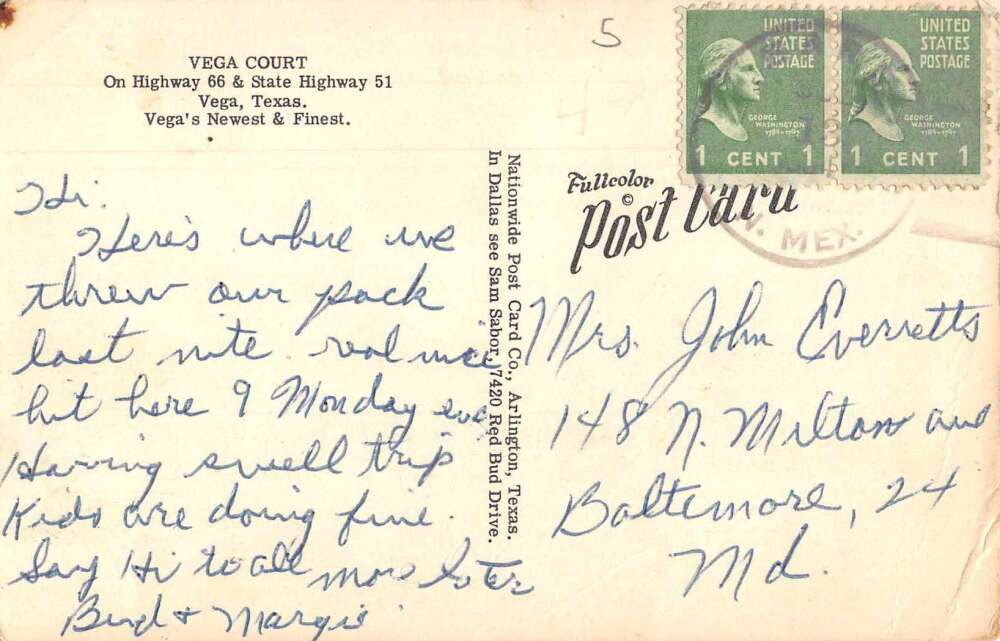 5
VEGA COURT
On Highway 66 & State Highway 51
Vega, Texas.
Vega's Newest & Finest.
UNITED
STATES
POSTAGE
GEORGE
WASHINGTON
1789-1797
1 CENT 1
UNITED
STATES
POSTAGE
GEORGE
WASHINGTON
1789-1797
1 CENT 1
N. MEX.
Fullcolor
©
Post Card
Nationwide Post Card Co., Arlington, Texas.
In Dallas see Sam Sabor, 7420 Red Bud Drive.
Hi.
Here's where we
threw our pack
last nite. real nice
hit here 9 Monday eve
Having swell trip
Kids are doing fine.
Say Hi to all more later
Bud & Margie
Mrs. John Everretts
148 N. Milton ave
Baltemore, 24
Md.